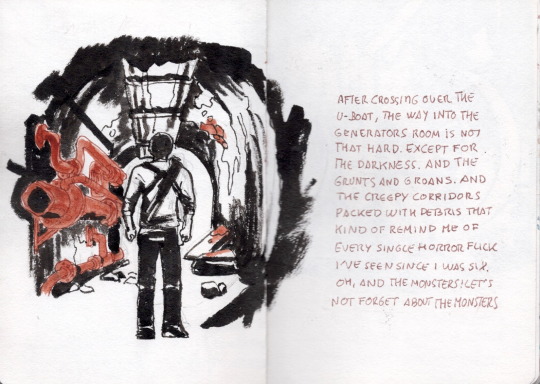 AFTER CROSSING OVER THE
U-BOAT, THE WAY INTO THE
GENERATORS ROOM IS NOT
THAT HARD. EXCEPT FOR
THE DARKNESS. AND THE
GRUNTS AND GROANS. AND
THE CREEPY CORRIDORS
PACKED WITH DEBRIS THAT
KIND OF REMIND ME OF
EVERY SINGLE HORROR FLICK
I'VE SEEN SINCE I WAS SIX.
OH, AND THE MONSTERS! LET'S
NOT FORGET ABOUT THE MONSTERS